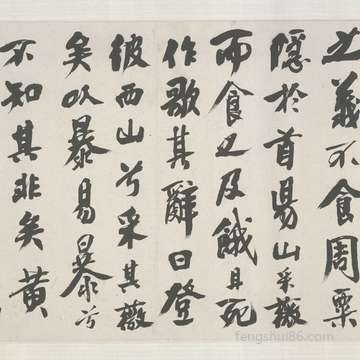 之義不食周粟
隱於首昜山采薇
而食之及餓且死
作歌其辭曰登
彼西山兮采其薇
矣以暴易暴兮
不知其非矣黄
fengshui86.com